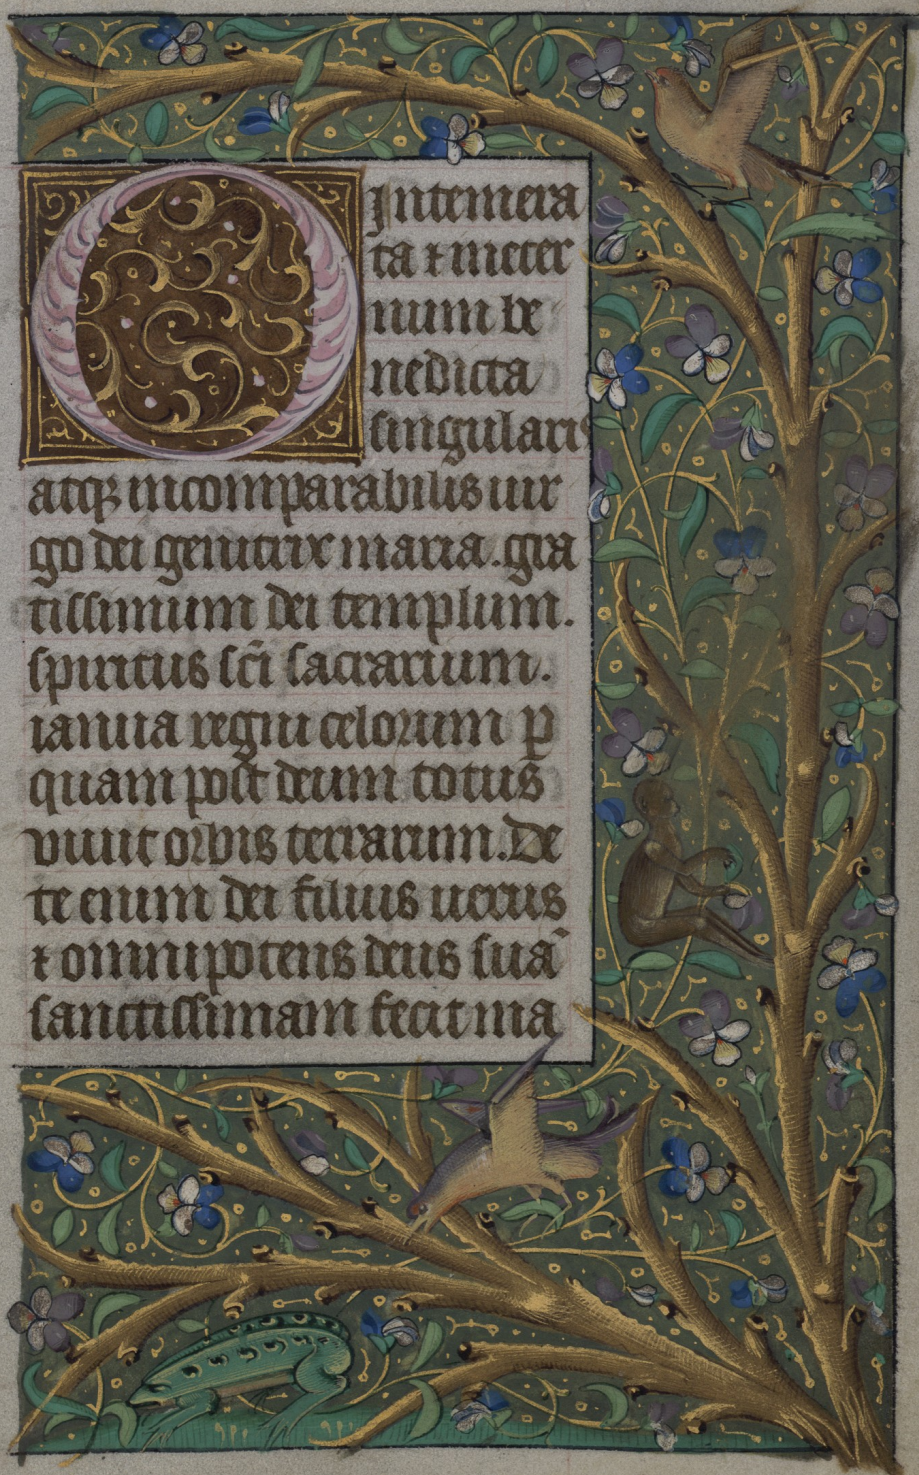 O intemera
ta et in eter
num be
nedicta
singularis
atq3 incomparabilis uir
go dei genitrix maria. gra
tissimum dei templum.
spiritus sc̄i sacrarium.
ianua regni celorum p̲
quam post deum totus
viuit orbis terrarum. De
te enim dei filius uerus
et omnipotens deus suā
sanctissimam fecit ma